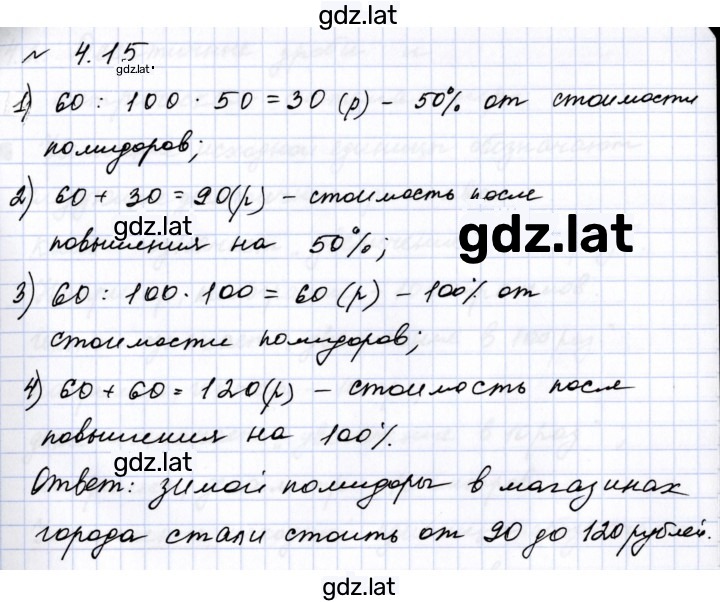 gdz.lat
№ 4.15.
gdz.lat
1) 60 : 100 · 50 = 30 (р) – 50% от стоимости
помидоров;
2) 60 + 30 = 90 (р) – стоимость после
gdz.lat
повышения на 50%;
gdz.lat
3) 60 : 100 · 100 = 60 (р) – 100% от
стоимости помидоров;
4) 60 + 60 = 120 (р) – стоимость после
повышения на 100%.
gdz.lat
Ответ: зимой помидоры в магазинах
города стали стоить от 90 до 120 рублей.
gdz.lat